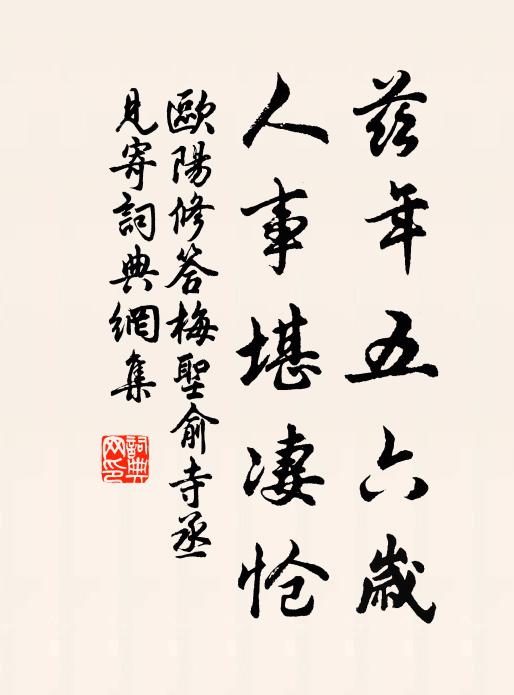 茲年五六歲
人事堪凄愴
歐陽修答梅聖俞寺丞
見寄詞典網集
詞典網印